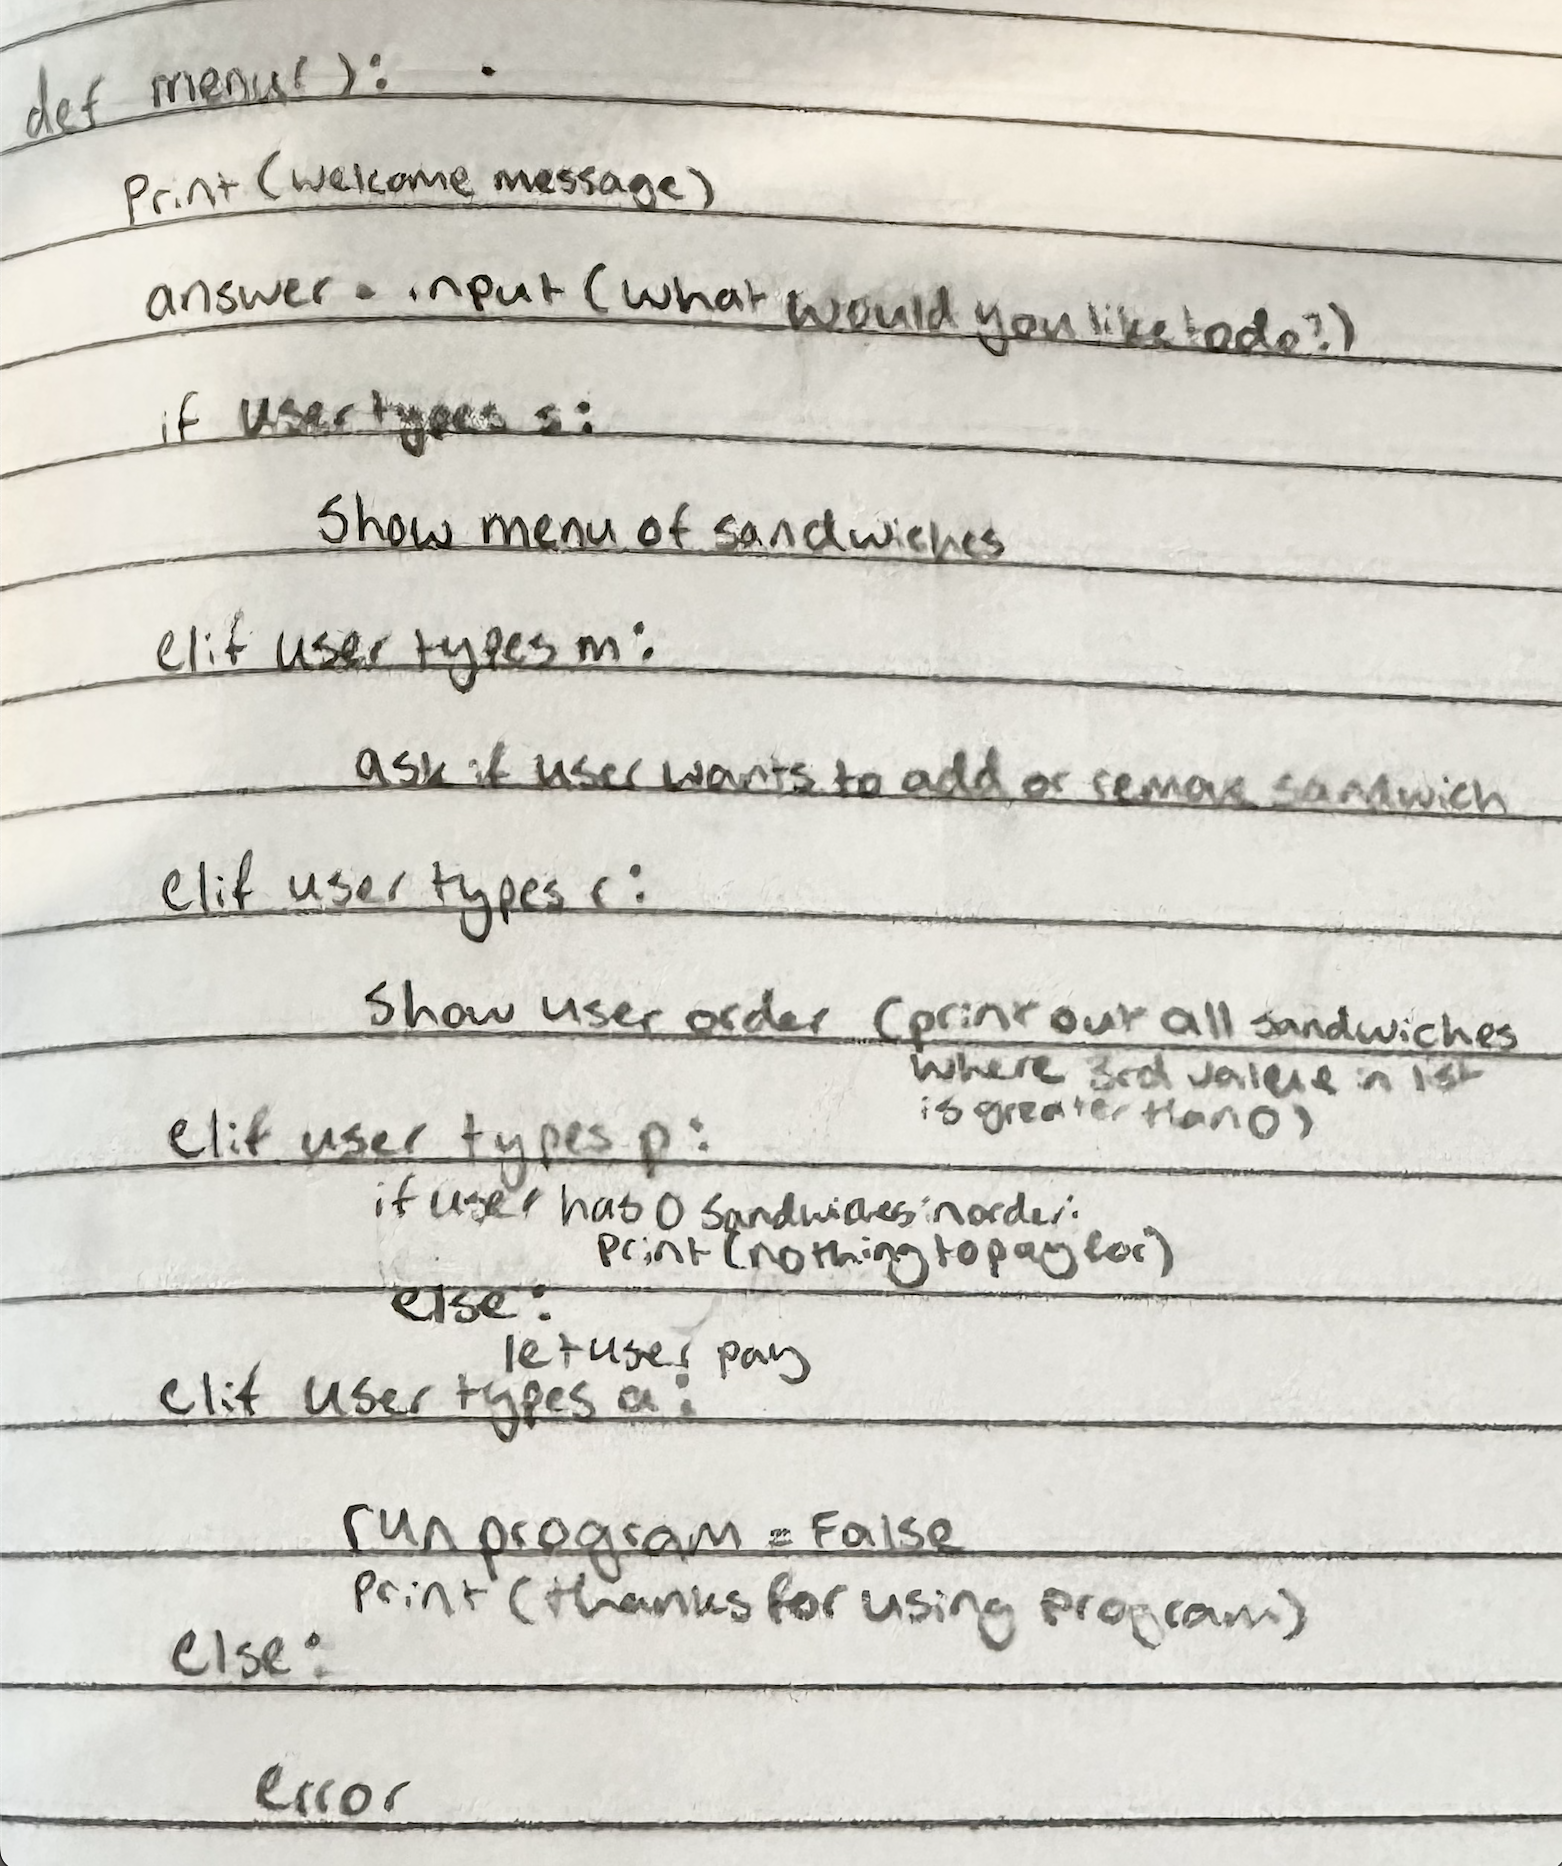 def menu():
Print (welcome message)
answer = input (what would you like to do?)
if user types s:
Show menu of sandwiches
elif user types m:
ask if user wants to add or remove sandwich
elif user types r:
Show user order (print out all sandwiches
where 3rd value in list
is greater than 0)
elif user types p:
if user has 0 sandwiches in order:
Print (nothing to pay for)
else:
let user pay
elif user types a:
run program = False
Print (thanks for using program)
else:
error